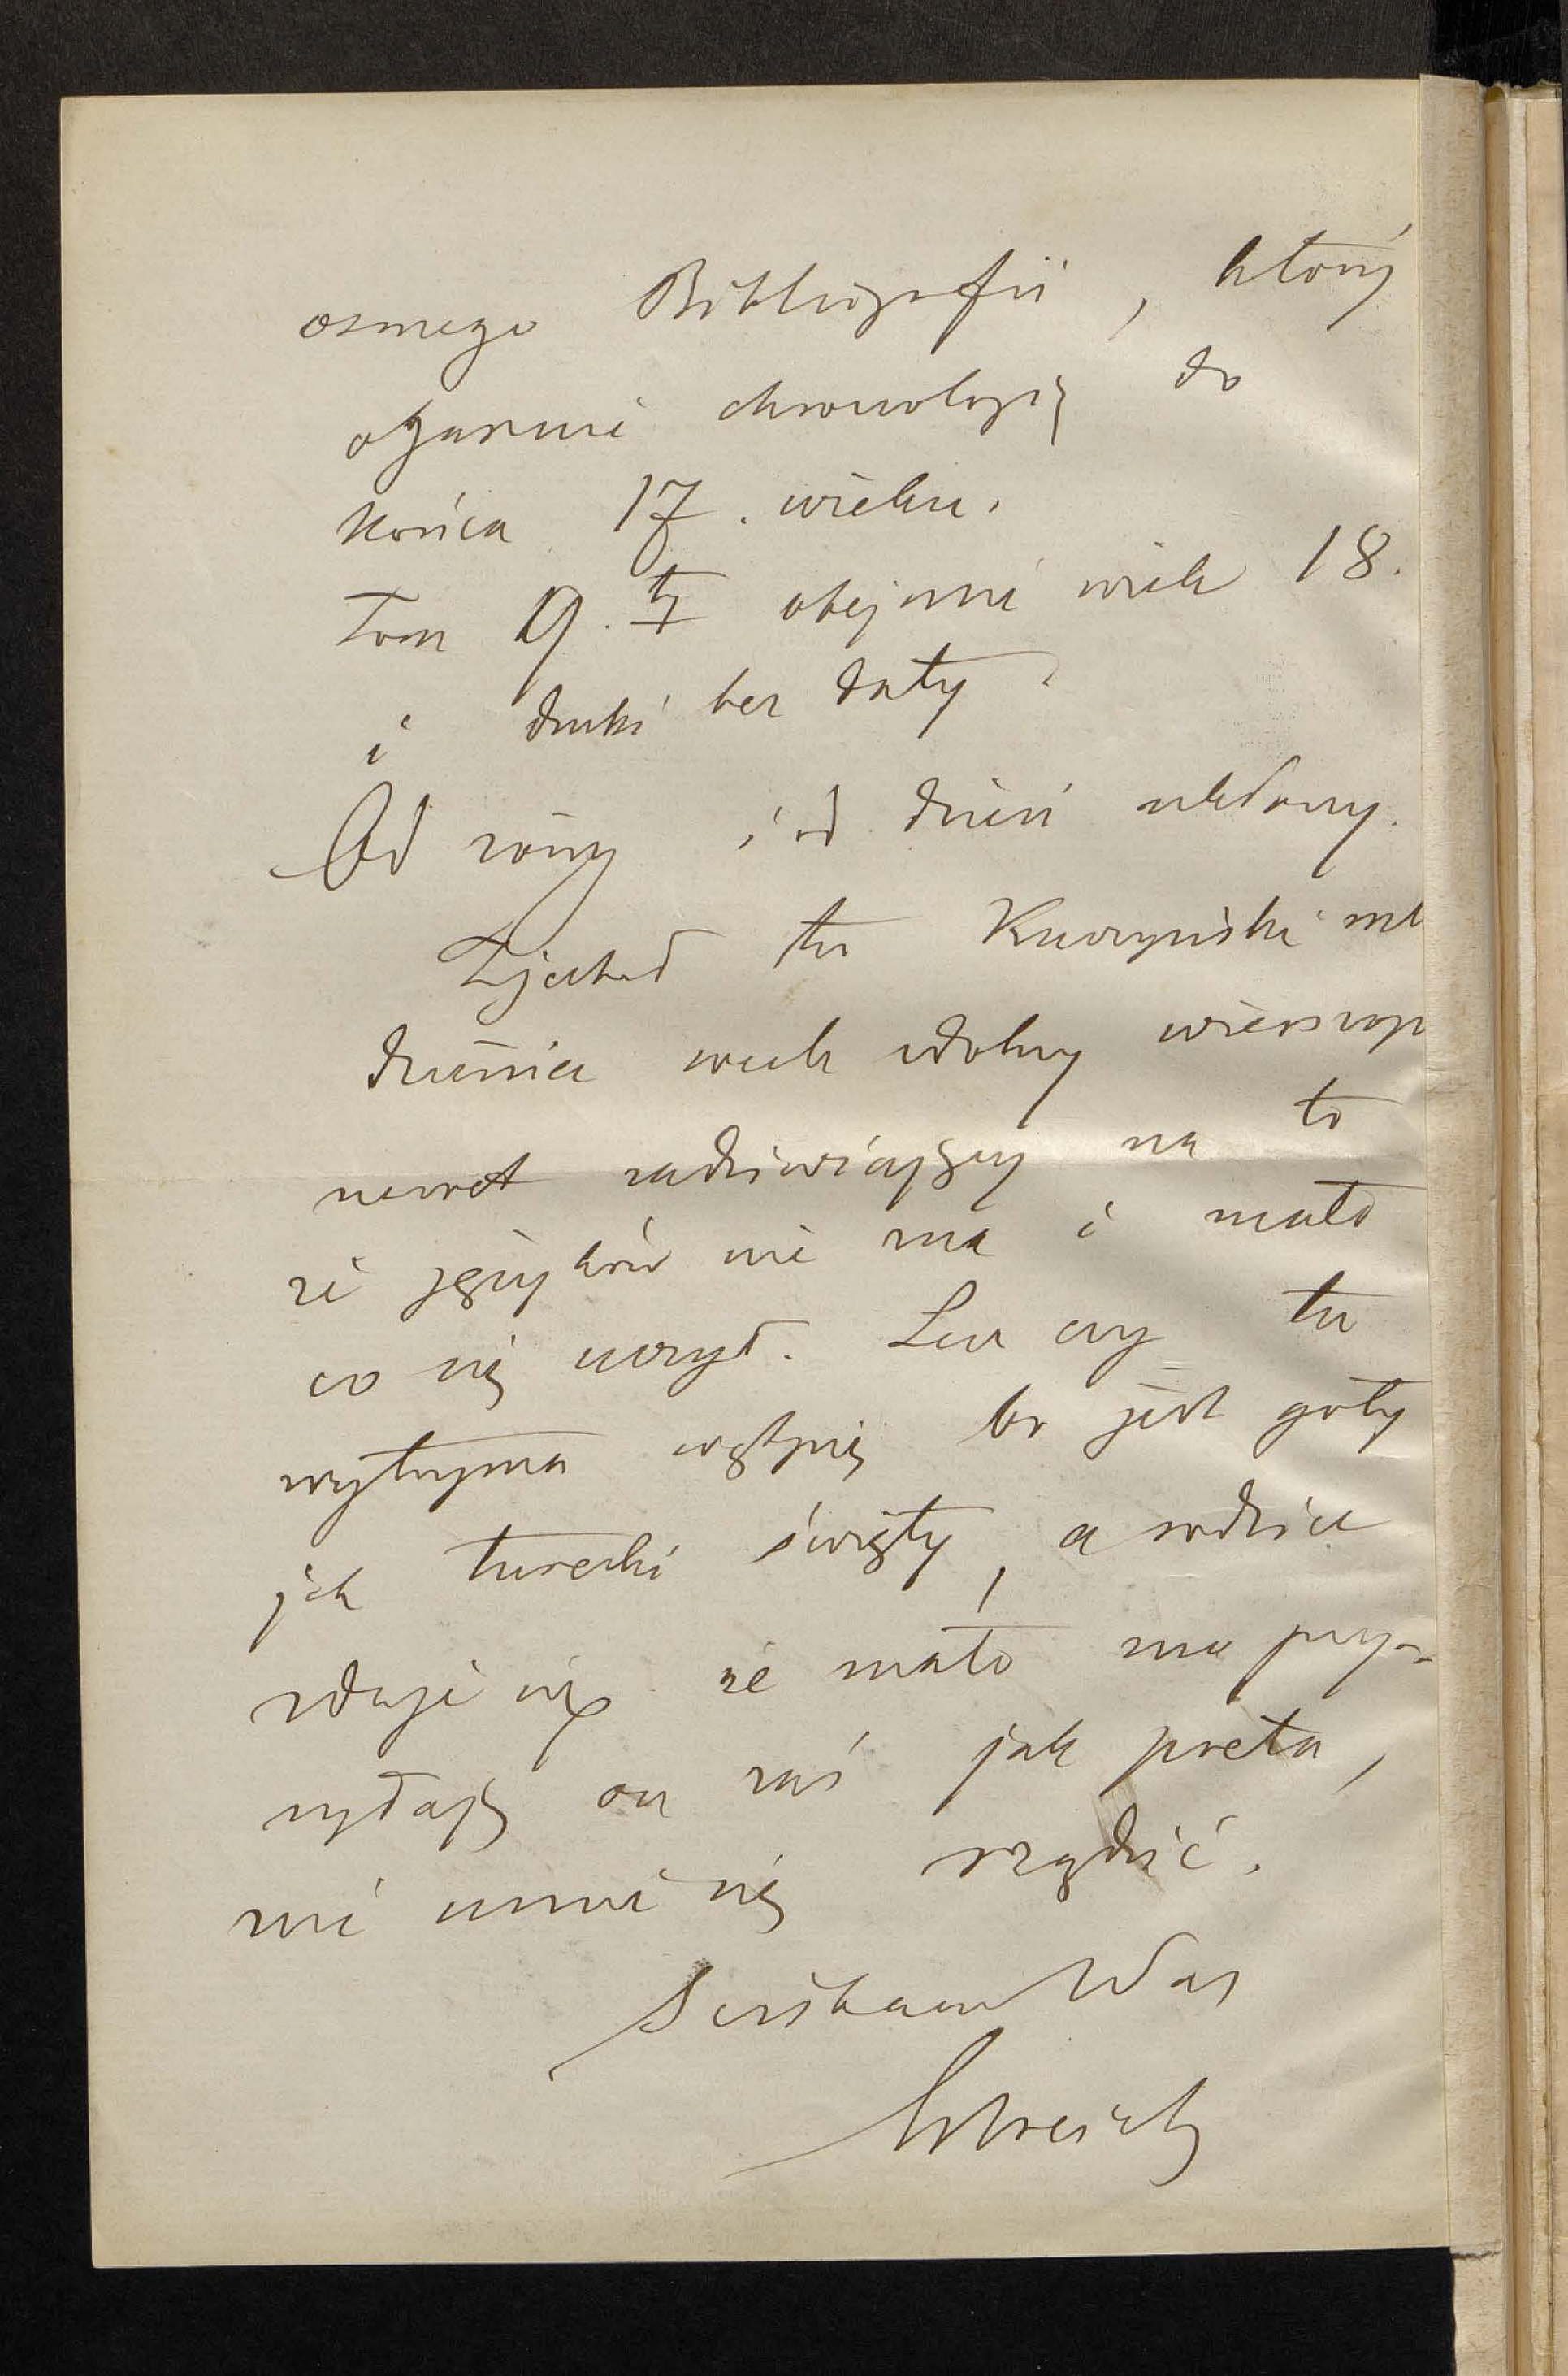 osmego Bibliografii, który
ogarnie chronologię do
końca 17. wieku.
Tom 9.ty obejmie wiek 18.
i druki bez daty.
Od żony i od dzieci ukłony.
Zjechał tu Kuczyński mł
dzieniec wielk zdolny wierszop
nawet zadziwiający na to
że języków nie ma i mało
co się uczył. Lecz czy tu
wytrzyma wątpię bo jest goły
jak turecki święty, a rodzice
zdaje się że mało mu przy-
syłają on zaś jak poeta,
nie umie się rządzić.
Ściskam Was
Estreich